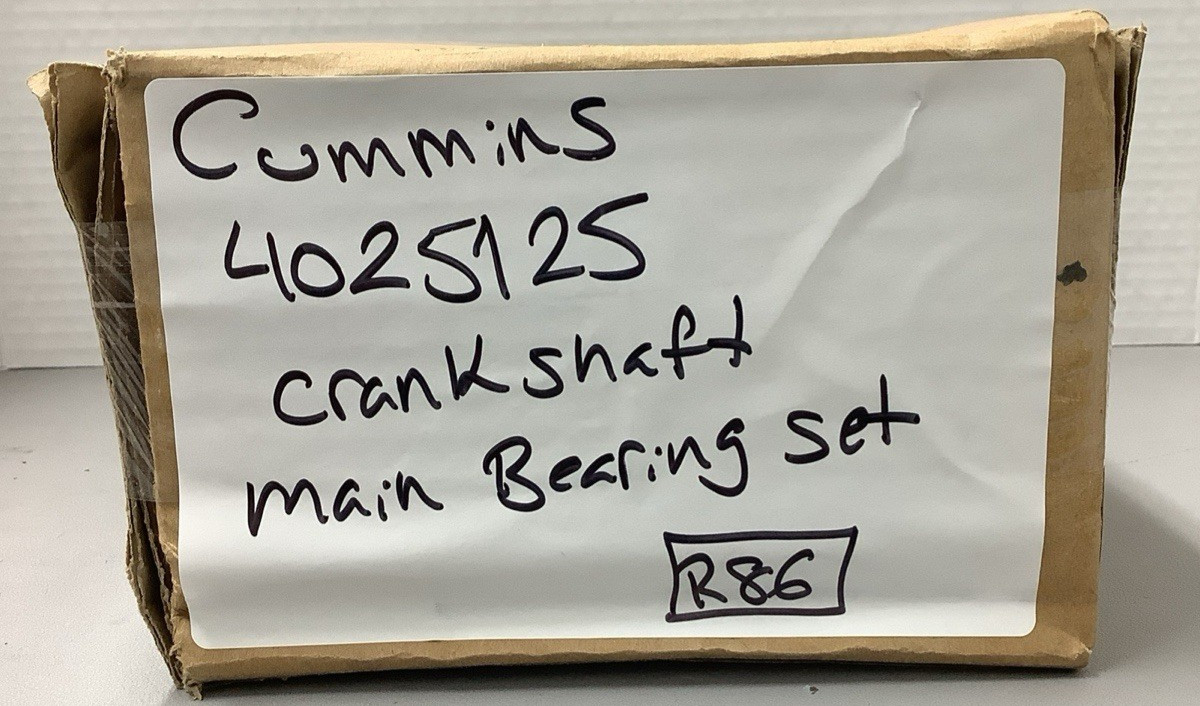 Cummins
4025125
crankshaft
main Bearing set
R86